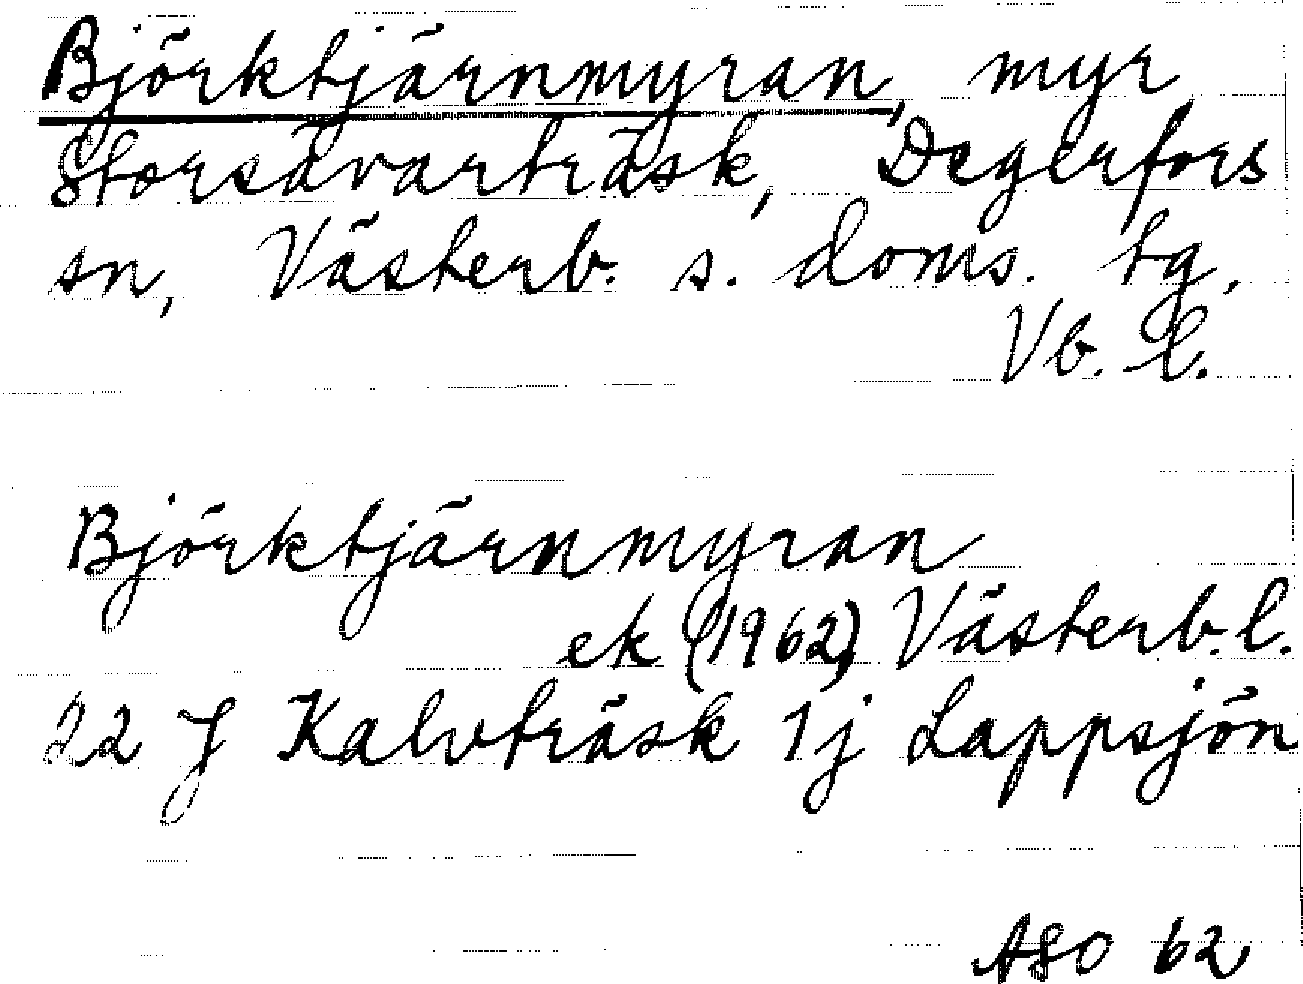 Björktjärnmyran, myr
Storsävarträsk, Degerfors
sn, Västerb. s. doms. tg,
Vb. l.
Björktjärnmyran
ek (1962) Västerb. l.
22 J Kalvträsk 1j Lappsjön
ASO 62